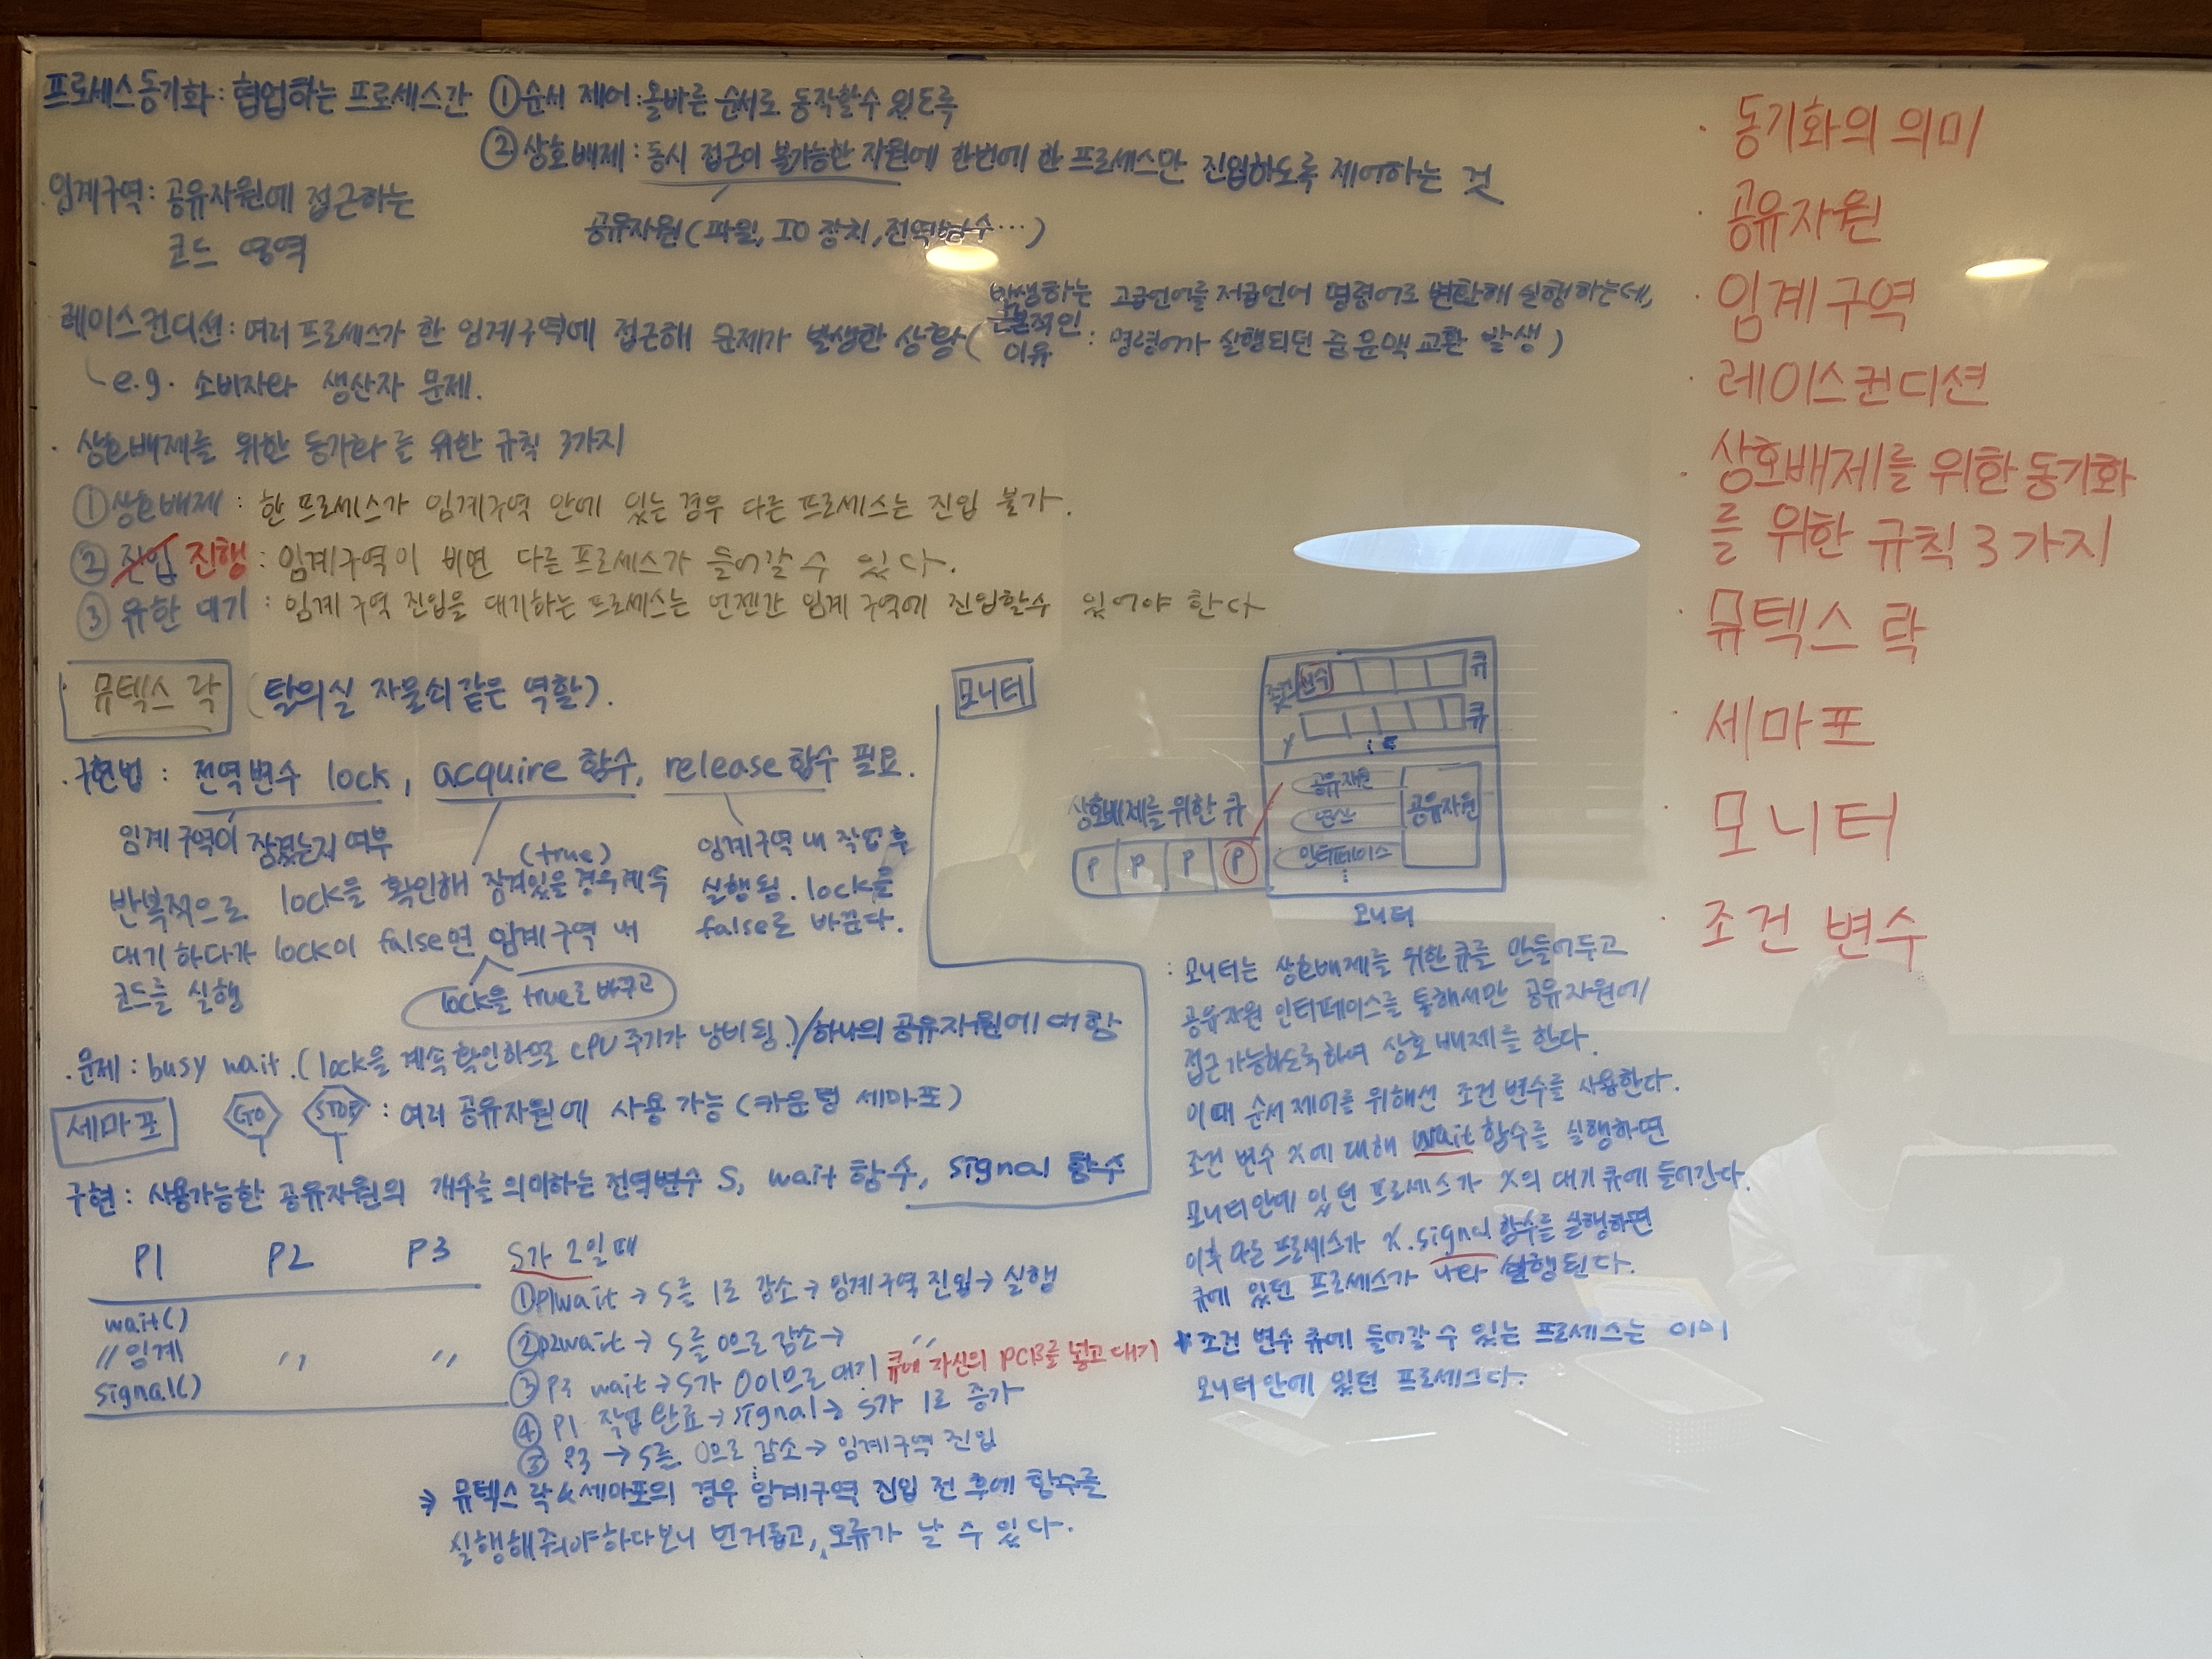 프로세스 동기화 : 협업하는 프로세스간 ① 순서 제어 : 올바른 순서로 동작할수 있도록
② 상호배제 : 동시 접근이 불가능한 자원에 한번에 한 프로세스만 진입하도록 제어하는 것
공유자원 (파일, IO 장치, 전역변수 ...)
임계구역 : 공유자원에 접근하는
코드 영역
레이스컨디션 : 여러 프로세스가 한 임계구역에 접근해 문제가 발생한 상황 (
발생하는
근본적인
이유
: 고급언어를 저급언어 명령어로 변환해 실행하는데,
명령어가 실행되던 중 문맥 교환 발생)
e.g. 소비자와 생산자 문제.
· 상호배제를 위한 동기화를 위한 규칙 3가지
① 상호배제 : 한 프로세스가 임계구역 안에 있는 경우 다른 프로세스는 진입 불가.
② 진입 진행 : 임계구역이 비면 다른 프로세스가 들어갈 수 있다.
③ 유한 대기 : 임계구역 진입을 대기하는 프로세스는 언젠간 임계구역에 진입할수 있어야 한다
· 뮤텍스 락 (탈의실 자물쇠같은 역할).
· 구현법 : 전역변수 lock, acquire 함수, release 함수 필요.
임계구역이 잠겼는지 여부
반복적으로 lock을 확인해 잠겨있을 경우 계속
(true)
대기하다가 lock이 false면 임계구역 내
코드를 실행
lock을 true로 바꾸고
임계구역 내 작업 후
실행됨. lock을
false로 바꾼다.
· 문제 : busy wait. (lock을 계속 확인하므로 CPU 주기가 낭비됨.) / 하나의 공유자원에 대함
세마포 GO STOP : 여러 공유자원에 사용 가능 (카운팅 세마포)
구현 : 사용가능한 공유자원의 개수를 의미하는 전역변수 S, wait 함수, signal 함수
P1 P2 P3
wait()
// 임계 〃 〃
signal()
S가 2일때
① P1 wait → S를 1로 감소 → 임계구역 진입 → 실행
② P2 wait → S를 0으로 감소 → 〃
③ P3 wait → S가 0이므로 대기 큐에 자신의 PCB를 넣고 대기
④ P1 작업 완료 → signal → S가 1로 증가
⑤ P3 → S를 0으로 감소 → 임계구역 진입
⇒ 뮤텍스 락 & 세마포의 경우 임계구역 진입 전 후에 함수를
실행해줘야하다보니 번거롭고, 오류가 날 수 있다.
모니터
조건 변수 큐
Y 큐
공유자원
연산
인터페이스
공유자원
상호배제를 위한 큐
P P P P
모니터
: 모니터는 상호배제를 위한 큐를 만들어두고
공유자원 인터페이스를 통해서만 공유자원에
접근 가능하도록하여 상호 배제를 한다.
이때 순서 제어를 위해선 조건 변수를 사용한다.
조건 변수 X에 대해 wait 함수를 실행하면
모니터 안에 있던 프로세스가 X의 대기 큐에 들어간다.
이후 다른 프로세스가 X.signal 함수를 실행하면
큐에 있던 프로세스가 나와 실행된다.
* 조건 변수 큐에 들어갈 수 있는 프로세스는 이미
모니터 안에 있던 프로세스다.
· 동기화의 의미
· 공유자원
· 임계구역
· 레이스컨디션
· 상호배제를 위한 동기화
를 위한 규칙 3가지
· 뮤텍스 락
· 세마포
· 모니터
· 조건 변수